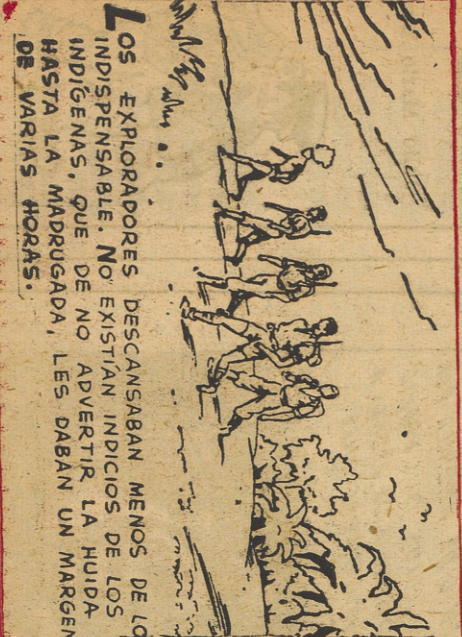 LOS EXPLORADORES DESCANSABAN MENOS DE LO
INDISPENSABLE. NO EXISTÍAN INDICIOS DE LOS
INDÍGENAS, QUE DE NO ADVERTIR LA HUIDA
HASTA LA MADRUGADA, LES DABAN UN MARGEN
DE VARIAS HORAS.